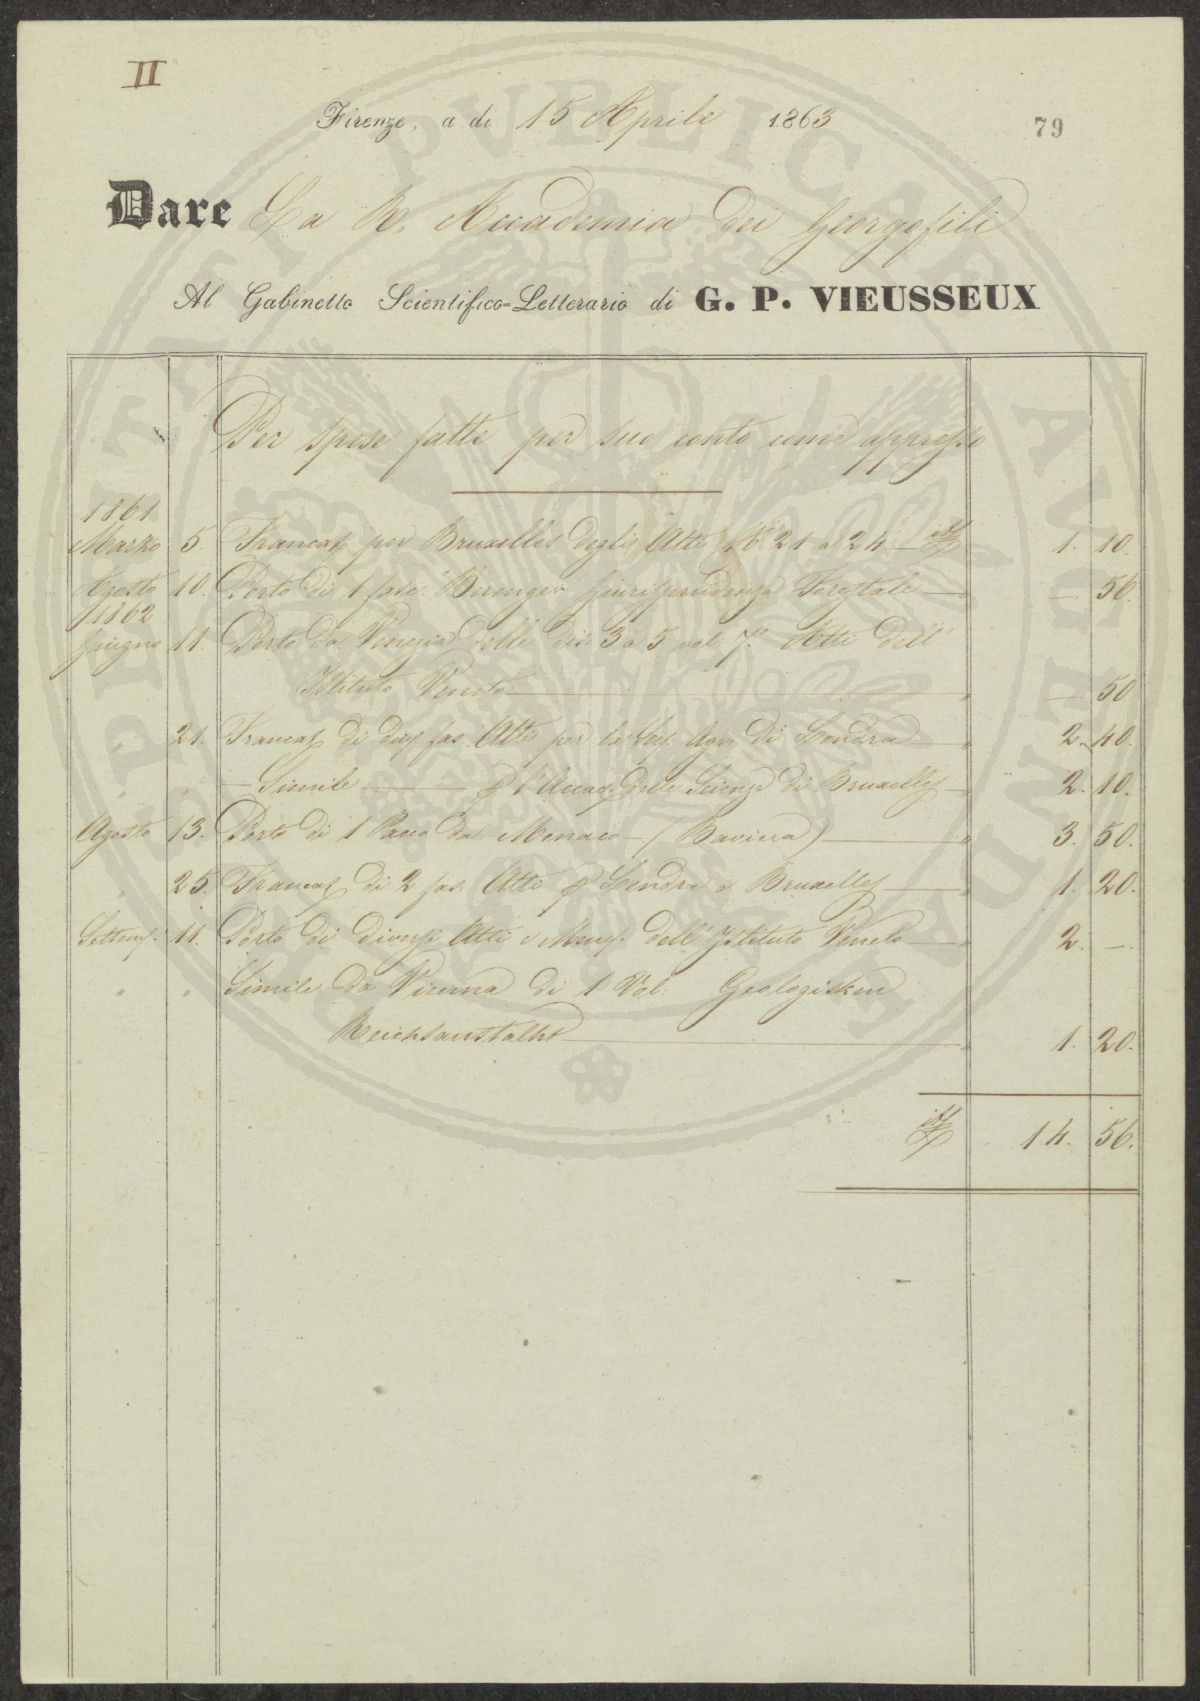 II
Firenze, a di 15 Aprile 1863
79
Dare La R. Accademia dei Georgofili
Al Gabinetto Scientifico-Letterario di G. P. VIEUSSEUX
Per spese fatte per suo conto come appresso
1861
Marzo 5. Francat. per Bruxelles degli Atti N. 21 a 24 1. 10.
Agosto 10. Porto di 1 fasc. Berenger Giurisprudenza Forestale " — 56.
1862
Giugno 11. Porto da Venezia delle dis. 3 a 5 vol. 7.º Atti dell'
Istituto Veneto " — 50
" 21. Francat. di due fas. Atti per la Agr. di Londra " 2. 40.
" " — Simile — p l'Accad. delle Scienze di Bruxelles " 2. 10.
Agosto 13. Porto di 1 Pacco da Monaco — (Baviera) " 3. 50.
" 25. Francat. di 2 fas. Atti p Londra e Bruxelles " 1. 20.
Settem. 11. Porto di diversi Atti e Mem. dell'Istituto Veneto " 2. —.
" " Simile da Vienna di 1 Vol. Geologisken
Reichsanstalht " 1. 20.
14. 56.